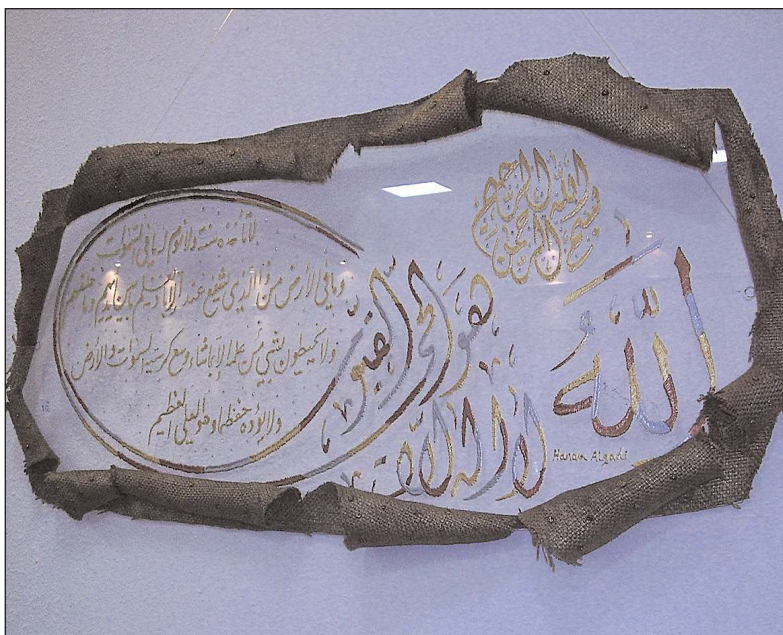 بسم الله الرحمن الرحيم
الله
لا اله الا
هو الحي القيوم
لا تأخذه سنة ولا نوم له ما في السموات
وما في الأرض من ذا الذي يشفع عنده إلا يعلم ما بين أيديهم وما خلفهم
ولا يحيطون بشيء من علمه إلا بما شاء وسع كرسيه السموات والأرض
ولا يؤده حفظهما وهو العلي العظيم
Hanan